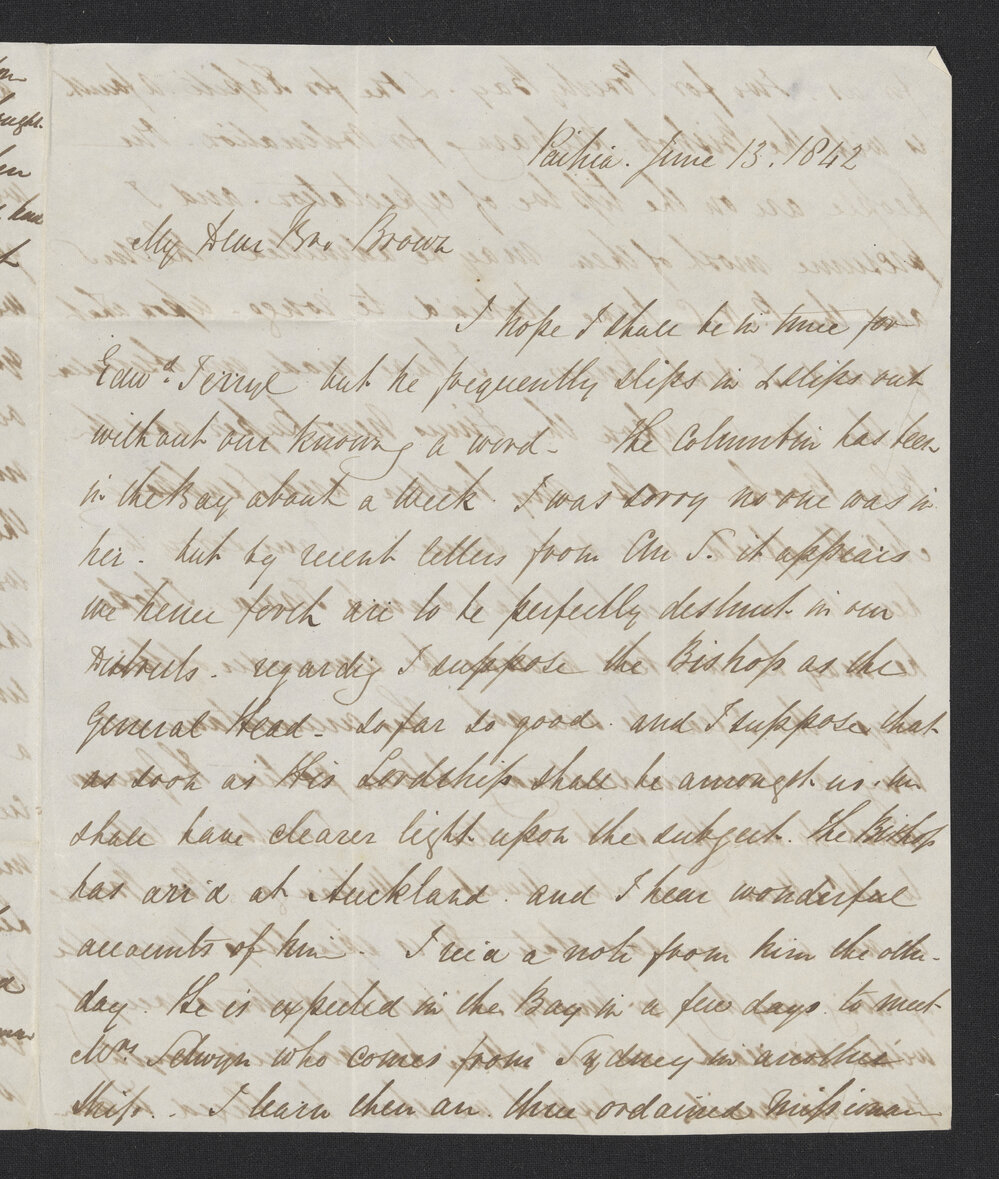 Paihia. June 13. 1842
My Dear Bro Brown
I hope I shall be in time for
Edwd. but he frequently slips in & slips out
without our knowing a word - The Columbin has been
in the Bay about a Week. I was sorry no one was in
her. but by recent letters from it appears
we hence forth are to be perfectly distinct in our
Districts. regarding I suppose the Bishop as the
General Head - so far so good. and I suppose that
as soon as His Lordship shall be amongst us. we
shall have clearer light upon the subject. The Bishop
has arrd at Auckland. and I hear wonderful
accounts of him. I recd a note from him the other
day. He is expected in the Bay in a few days to meet
Mrs Selwyn who comes from Sydney in another
Ship. - I learn there are three ordained Missionar